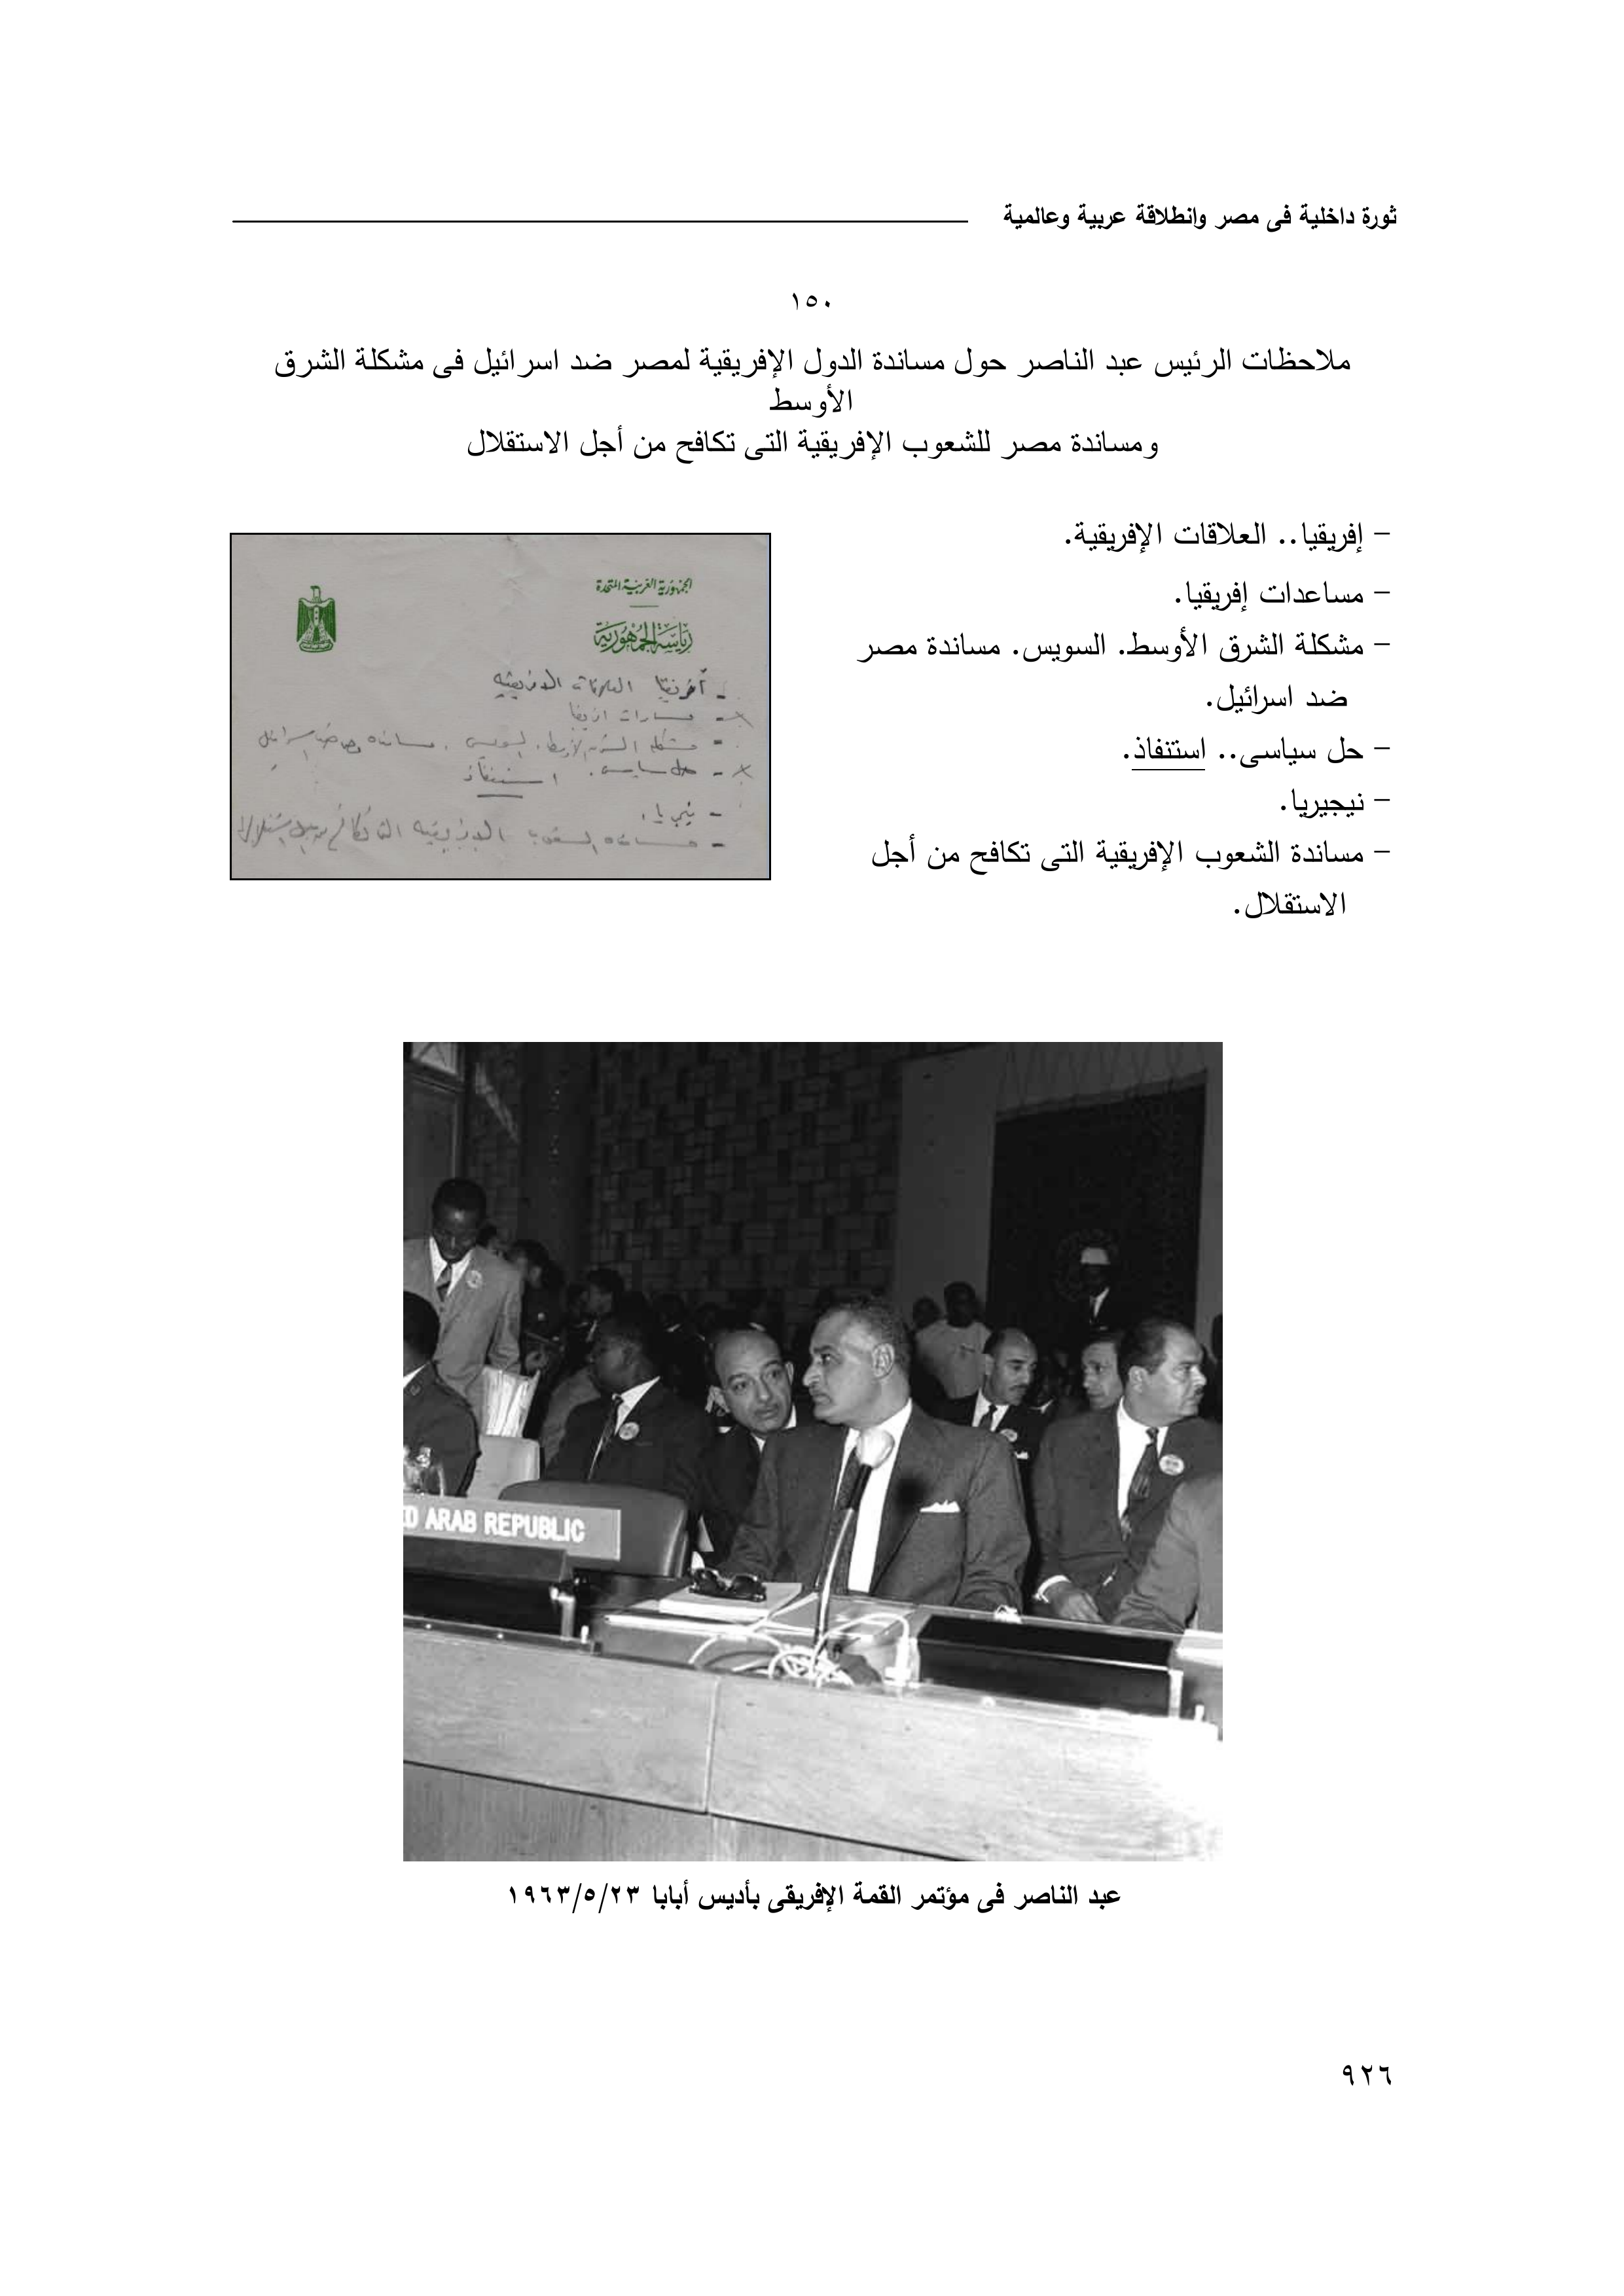 ثورة داخلية فى مصر وانطلاقة عربية وعالمية
١٥٠
ملاحظات الرئيس عبد الناصر حول مساندة الدول الإفريقية لمصر ضد اسرائيل فى مشكلة الشرق
الأوسط
ومساندة مصر للشعوب الإفريقية التى تكافح من أجل الاستقلال
- إفريقيا.. العلاقات الإفريقية.
- مساعدات إفريقيا.
- مشكلة الشرق الأوسط. السويس. مساندة مصر
ضد اسرائيل.
- حل سياسى.. استنفاذ.
- نيجيريا.
- مساندة الشعوب الإفريقية التى تكافح من أجل
الاستقلال.
الجمهورية العربية المتحدة
رياسة الجمهورية
- أفريقيا العلاقات الافريقيه
- مشكلة الشرق الأوسط. السويس. مسانده مصر ضد اسرائيل
- حل سياسى. استنفاذ
- نيجيريا.
- مسانده الشعوب الافريقيه التى تكافح من اجل استقلال
ED ARAB REPUBLIC
عبد الناصر فى مؤتمر القمة الإفريقى بأديس أبابا ١٩٦٣/٥/٢٣
٩٢٦